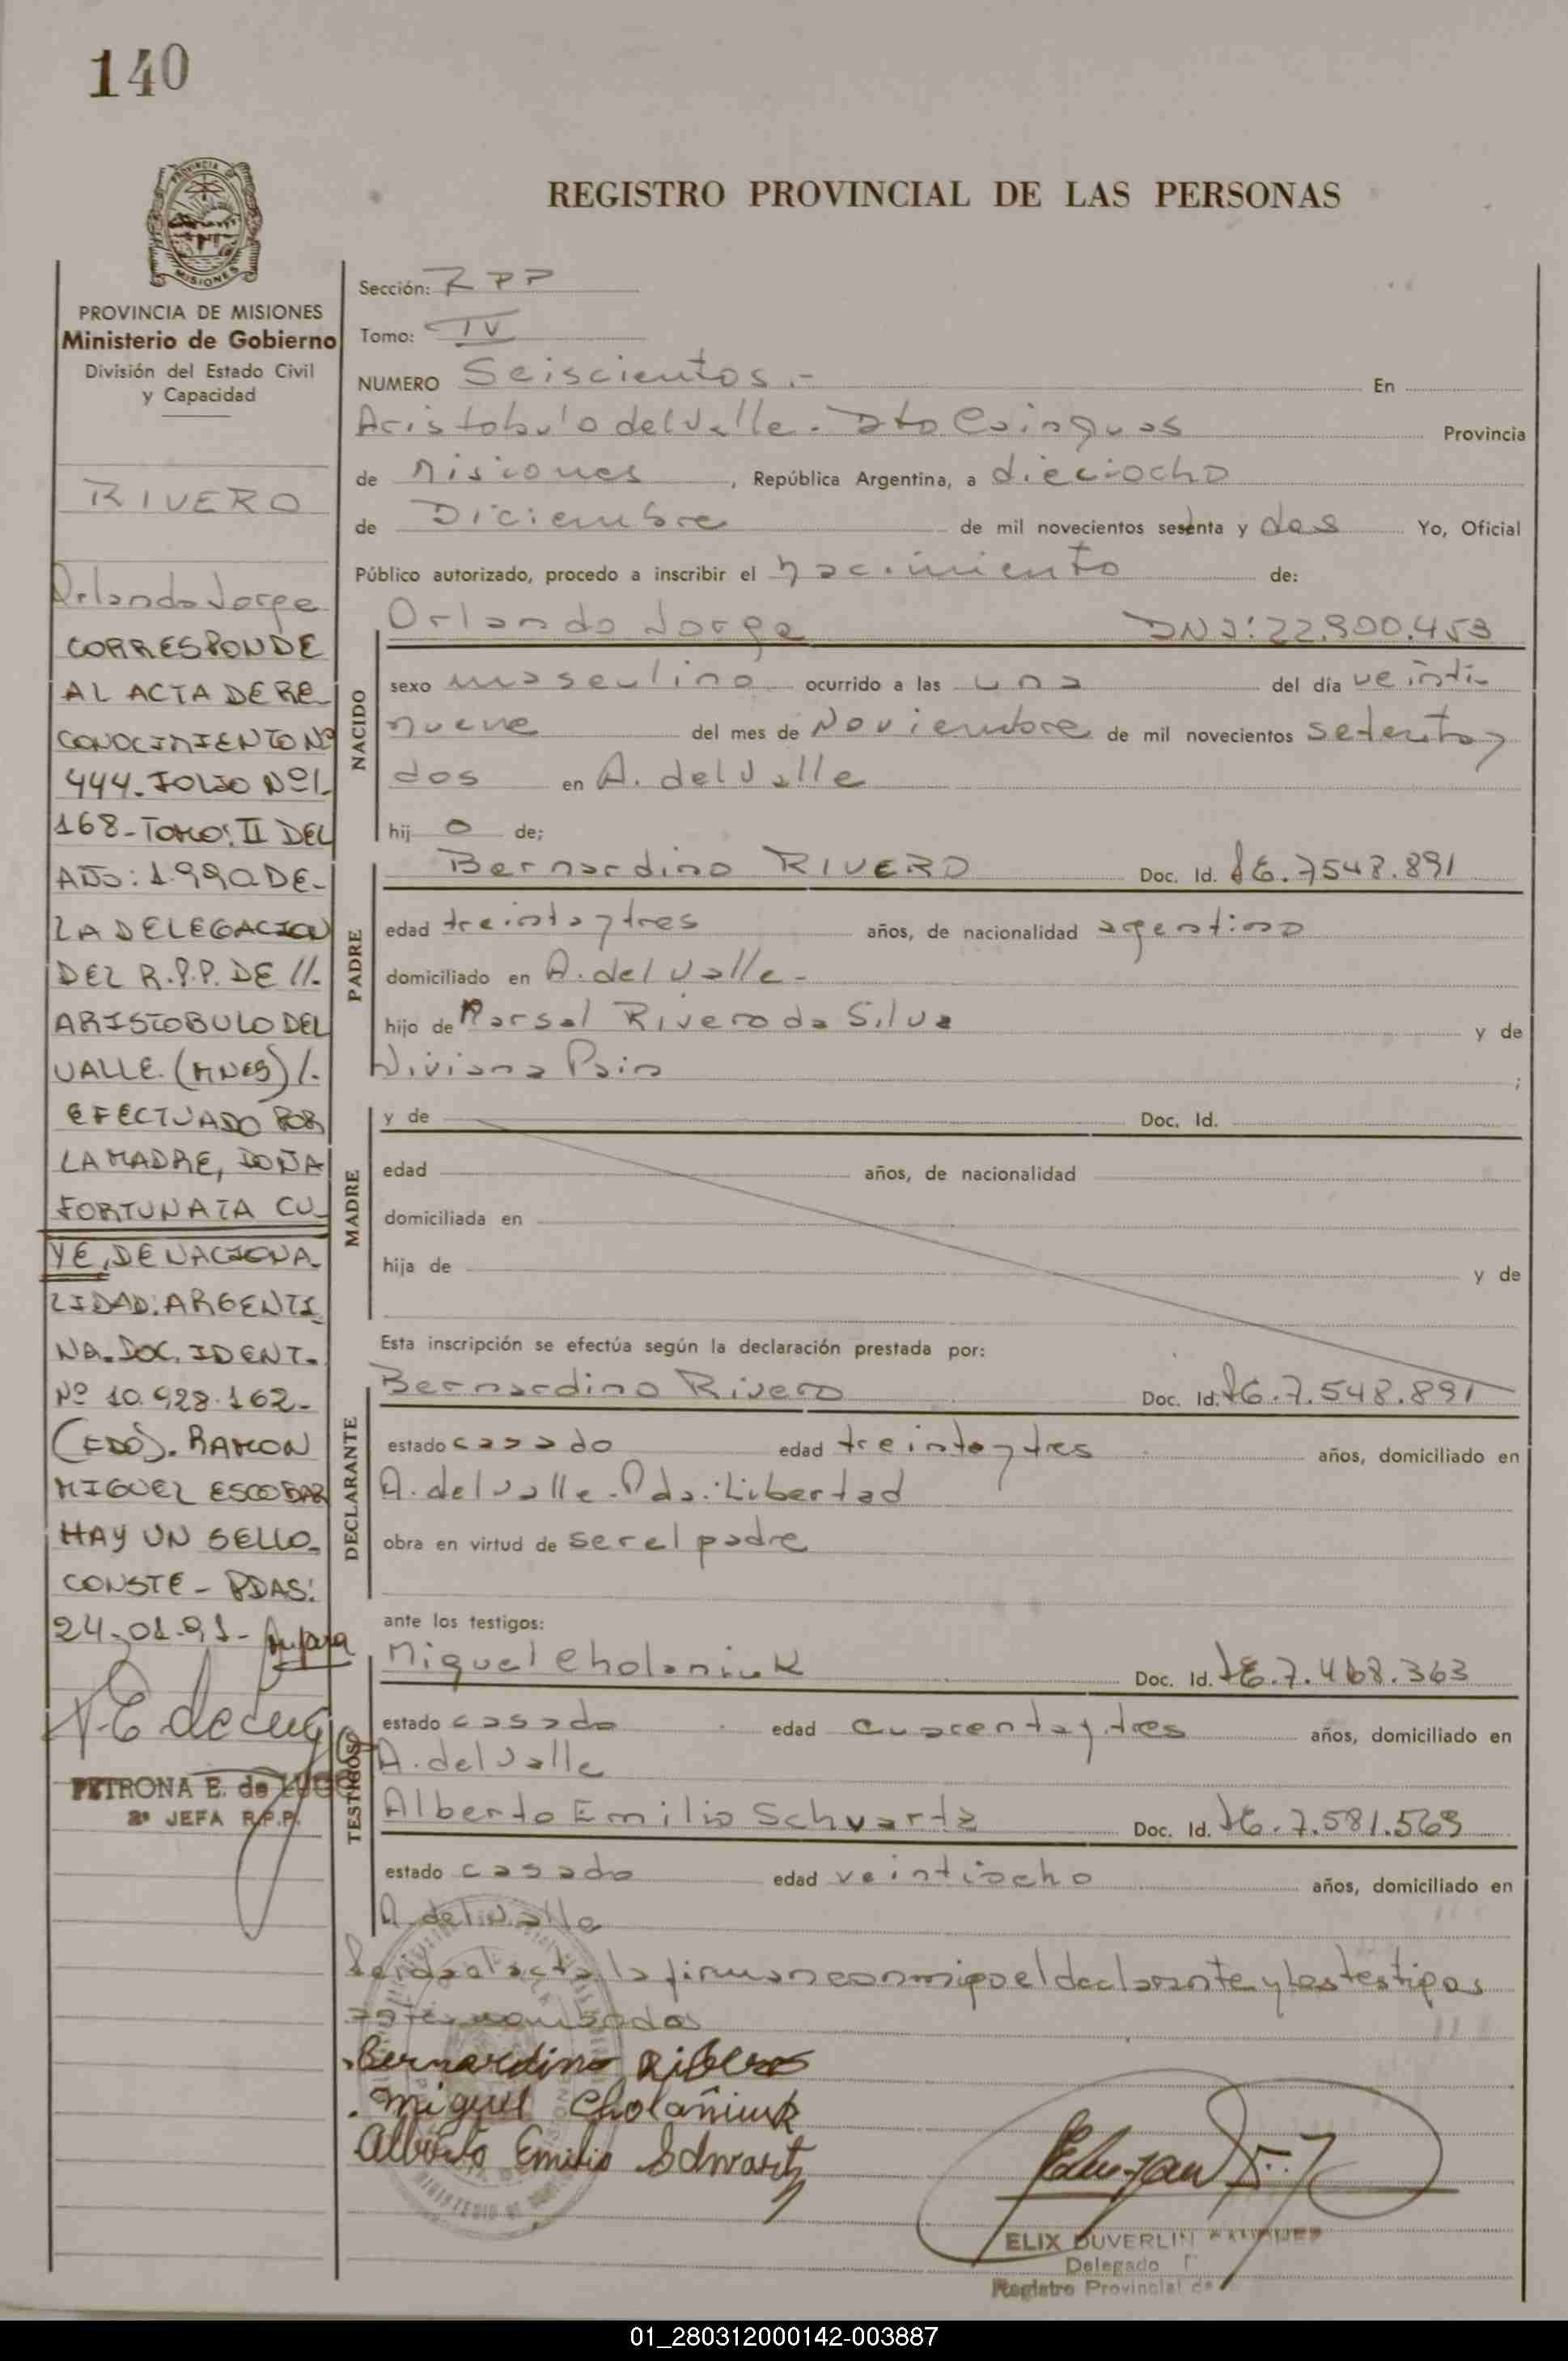 140
REGISTRO PROVINCIAL DE LAS PERSONAS
PROVINCIA DE MISIONES
Ministerio de Gobierno
División del Estado Civil
y Capacidad
RIVERO
Orlando Jorge
CORRESPONDE
AL ACTA DE RE_
CONOCIMIENTO Nº
444. FOLIO Nº 1.
168_ TOMO: II DEL
AÑO: 1.990 DE_
LA DELEGACION
DEL R.P.P. DE //.
ARISTOBULO DEL
VALLE. (MNES) /.
EFECTUADO POR
LA MADRE, DOÑA
FORTUNATA CU_
YE, DE NACIONA_
LIDAD: ARGENTI_
NA. DOC. IDENT.
Nº 10.928.162_
(FDO). RAMON
MIGUEL ESCOBAR
HAY UN SELLO_
CONSTE _ PDAS:
24-01-91_
PETRONA E. de LUGO
2ª JEFA R.P.P.
Sección: RPP
Tomo: IV
NUMERO Seiscientos.- En
Aristobulo del Valle. Dto Cainguas Provincia
de Misiones, República Argentina, a dieciocho
de Diciembre de mil novecientos setenta y dos Yo, Oficial
Público autorizado, procedo a inscribir el nacimiento de:
Orlando Jorge DNI: 22.900.453
NACIDO
sexo masculino ocurrido a las una del día veinti-
nueve del mes de Noviembre de mil novecientos setenta y
dos en A. del Valle
hijo de;
PADRE
Bernardino RIVERO Doc. Id. LE. 7548.891
edad treinta y tres años, de nacionalidad agentino
domiciliado en A. del Valle-
hijo de Marsal Rivero da Silva y de
Niviana Pain ;
MADRE
y de Doc. Id.
edad años, de nacionalidad
domiciliada en
hija de y de
Esta inscripción se efectúa según la declaración prestada por:
DECLARANTE
Bernardino Rivero Doc. Id. LE. 7.548.891
estado casado edad treinta y tres años, domiciliado en
A. del Valle - Pda: Libertad
obra en virtud de ser el padre
ante los testigos:
TESTIGOS
Miguel Cholaniuk Doc. Id. LE. 7.468.363
estado casado edad cuarenta y tres años, domiciliado en
A. del Valle
Alberto Emilio Schvartz Doc. Id. LE. 7.581.569
estado casado edad veintiocho años, domiciliado en
A. del Valle
Leida el acta la firman conmigo el declarante y los testigos
antes nombrados
Bernardino Ribero
Miguel Cholañiuk
Alberto Emilio Schwartz
ELIX DUVERLIN
Delegado
Registro Provincial de
01_280312000142-003887